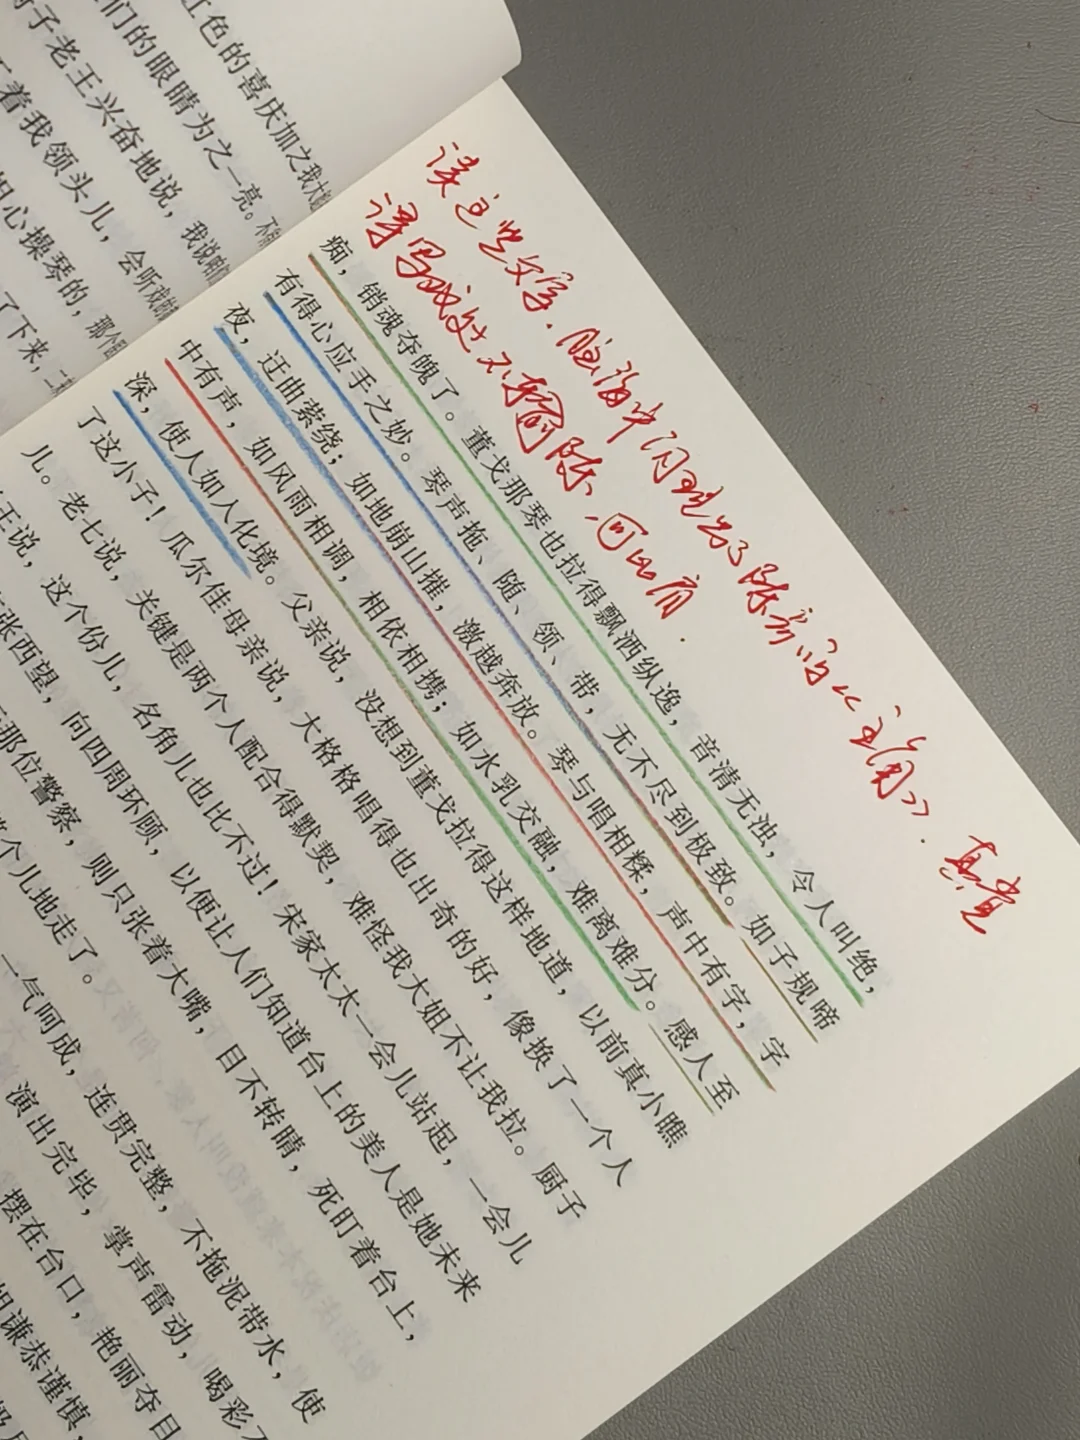 红色的喜庆加之我大
们的眼睛为之一亮。
厨子老王兴奋地说，我说
着我领头儿，会听戏的
心操琴的，那个
了下来，二
读这些文字，脑海中闪现出了陈彦的《主角》。真尝
译写成这不输陈，可比肩。
痴，销魂夺魄了。董戈那琴也拉得飘洒纵逸，音清无浊，令人叫绝，
有得心应手之妙。琴声拖、随、领、带，无不尽到极致。如子规啼
夜，迂曲萦绕；如地崩山摧，激越奔放。琴与唱相糅，声中有字，字
中有声，如风雨相调，相依相携；如水乳交融，难离难分。感人至
深，使人如人化境。父亲说，没想到董戈拉得这样地道，以前真小瞧
了这小子！瓜尔佳母亲说，大格格唱得也出奇的好，像换了一个人
儿。老七说，关键是两个人配合得默契，难怪我大姐不让我拉。厨子
王说，这个份儿，名角儿也比不过！宋家太太一会儿站起，一会儿
张西望，向四周环顾，以便让人们知道台上的美人是她未来
那位警察，则只张着大嘴，目不转睛，死盯着台上，
个儿地走了。
一气呵成，连贯完整，不拖泥带水，使
演出完毕，掌声雷动，喝彩
摆在台口，艳丽夺目
姐谦恭谨慎，